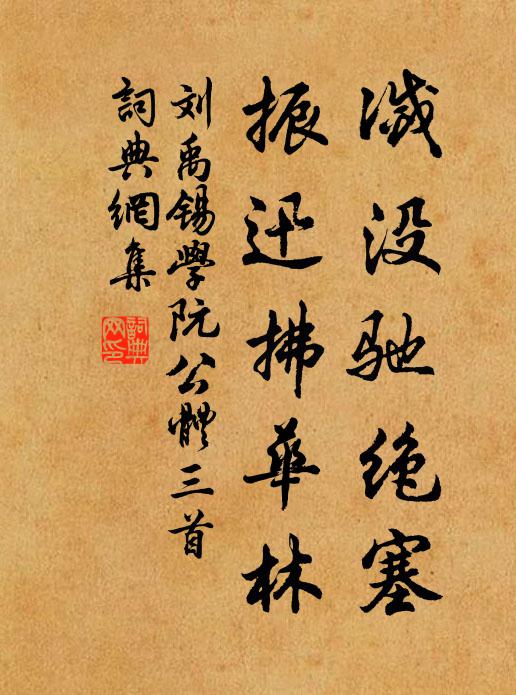 灭没驰绝塞
振迅拂华林
刘禹锡学阮公體三首
詞典網集
詞典网印